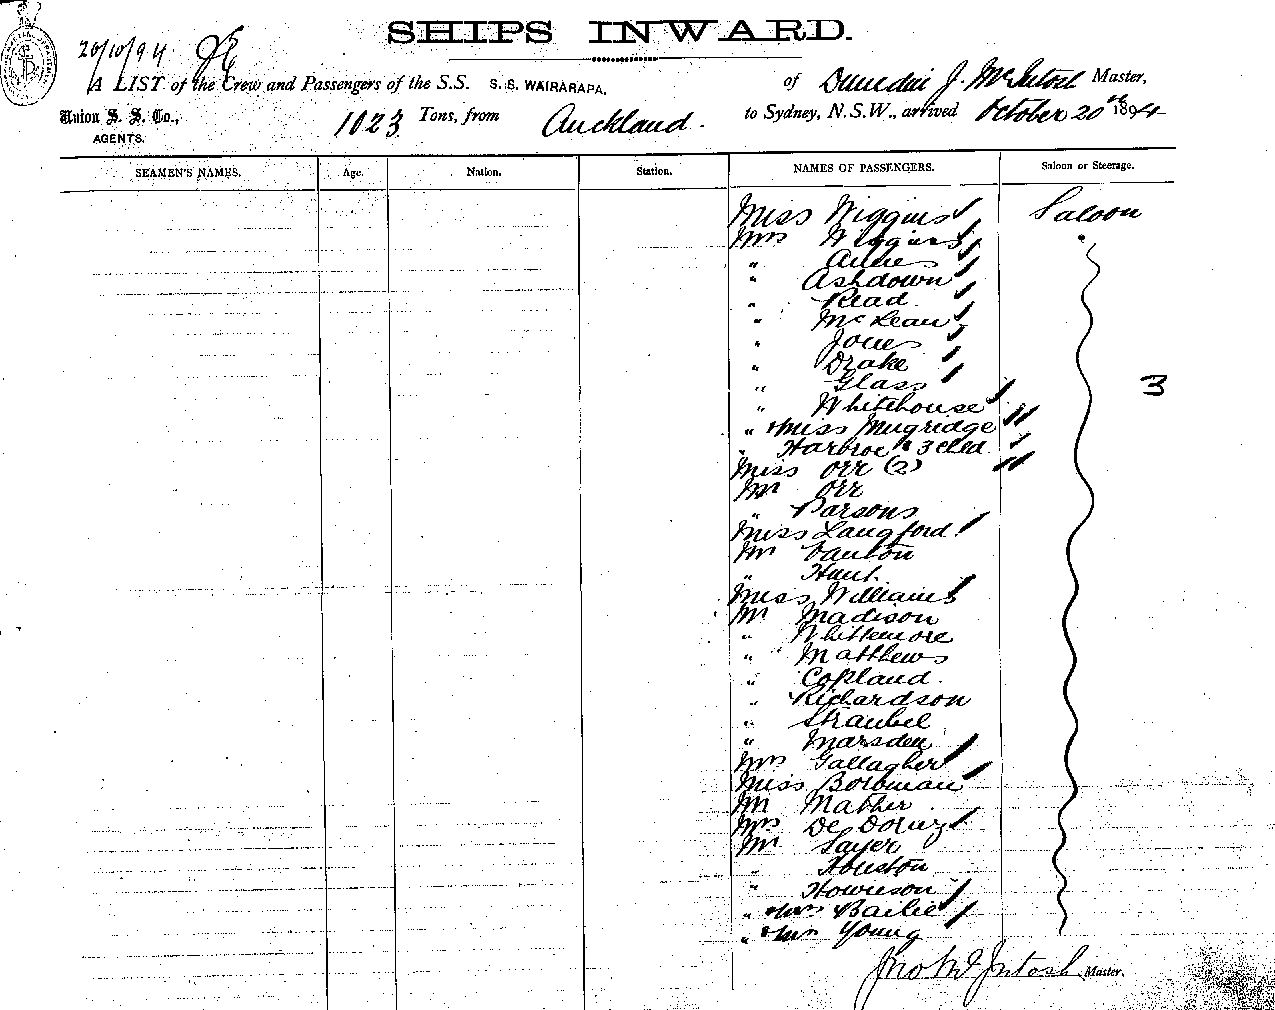 SHIPS INWARD.
20/10/94
A LIST of the Crew and Passengers of the S.S. S. S. WAIRARAPA, of Dunedin J. McIntosh Master,
Union S. S. Co., AGENTS. 1023 Tons, from Auckland. to Sydney, N.S.W., arrived October 20th 1894
SEAMEN'S NAMES. Age. Nation. Station. NAMES OF PASSENGERS. Saloon or Steerage.
Miss Wiggins Saloon
Mrs Wiggins
"
" Ashdown
" Read
" McLean
" Jones
" Drake
" Glass 3
" Whitehouse
" & Miss Mugridge
" Harbroe & 3 child
Miss Orr (2)
Mr Orr
" Parsons
Miss Langford
Mr
" Hunt
Miss Williams
Mr Madison
" Whittemore
" Matthews
" Copland
" Richardson
" Straubel
" Marsden
Mrs Gallagher
Miss Bowman
Mr Mather
Mrs De
Mr Sayer
" Houston
" Howieson
" & Mrs Bailie
" & Mrs Young
Jno McIntosh Master.